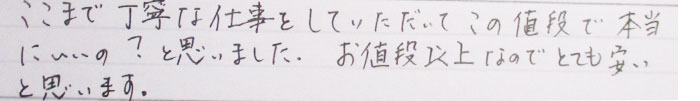 ここまで丁寧な仕事をしていただいてこの値段で本当
にいいの？と思いました. お値段以上なのでとても安い
と思います。